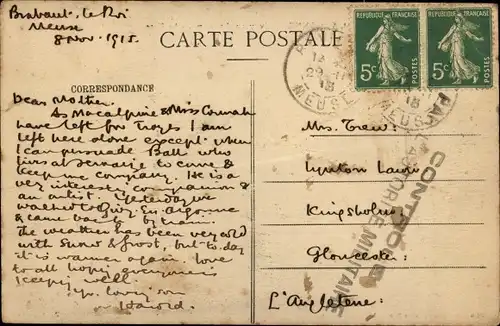 Brabant-le-Roi
Meuse
8 Nov. 1915
CARTE POSTALE
CORRESPONDANCE
Dear Mother.
As Macalpine & Miss
have left for Troyes I am
left here alone except when
I can persuade Balls who
lives at to come &
keep me company. He is a
very interesting companion &
an artist. Yesterday we
walked to Givry En Argonne
& came back by train.
The weather has been very cold
with snow & frost, but to-day
it is warmer again. Love
to all hoping everyone is
keeping well.
Yr. loving son
Harold.
REPUBLIQUE FRANÇAISE
5c POSTES
REPUBLIQUE FRANÇAISE
5c POSTES
MEUSE
MEUSE
CONTRÔLE
PAR L'AUTORITÉ MILITAIRE
Mrs. Trew:
Lawn:
Kingsholm:
Gloucester:
L'Angleterre: